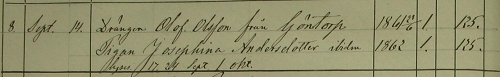 8. Sept. 14. Drängen Olof Olsson från Göntorp 1861 21/6 1. 125.
Pigan Josephina Andersdotter ibidem 1862 1. 125.
lyses 17, 24 Sept. 1 okt.